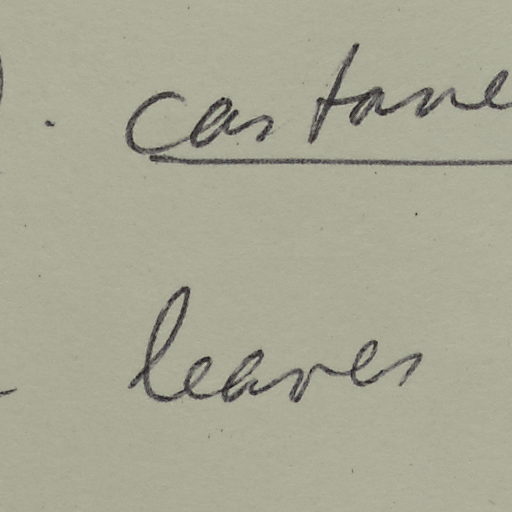 . castane
leaves